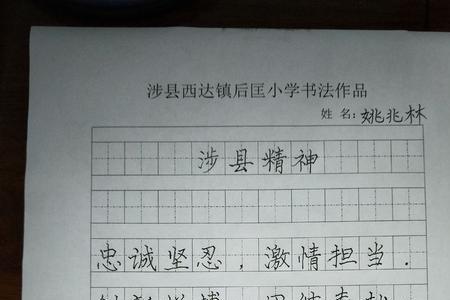 涉县西达镇后匡小学书法作品
姓名:姚兆林
涉县精神
忠诚坚忍,激情担当.